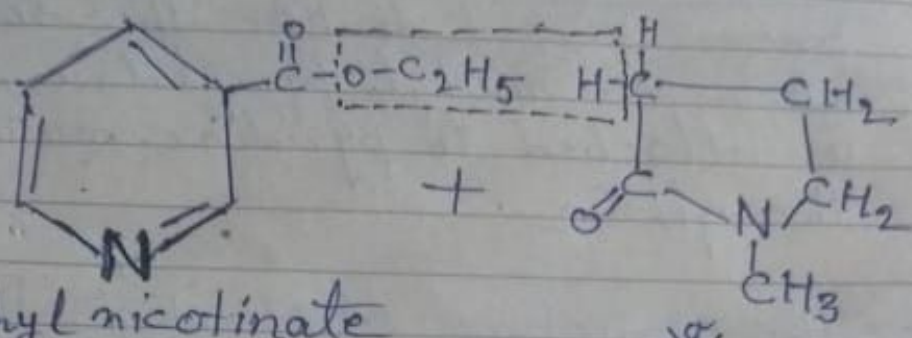 O H
C-O-C2H5 H-C CH2
+
O C N CH2
N CH3
nicotinate